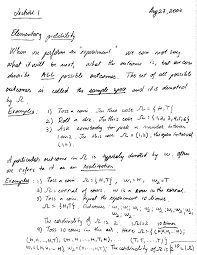 Lecture 1 Aug 27, 2002
Elementary probability
When we perform an "experiment" we can not say
what it will be next, what the outcome is, but we can
describe ALL possible outcomes. The set of all possible
outcomes is called the sample space and it's denoted
by Ω
Examples: 1) Toss a coin. In this case Ω = {H,T}
2) Roll a die. In this case Ω = {1,2,3,4,5,6}
3) Ask somebody to pick a number between
1 and 2. In this case Ω = (1,2), the open interval
(1,2).
A particular outcome in Ω is typically denoted by ω, often
we refers to it as an realization.
Examples: 1) Toss a coin Ω = {H,T}, ω₁ = H, ω₂ = T
2) Ω = of cards, ω is a in the
3) Toss a coin. Repeat the experiment 10 times.
Ω = {H,T} Outcomes
The cardinality of Ω is 2.
4) Toss 10 coins in the air. Here Ω =
The cardinality of Ω is 2¹⁰ = |Ω|